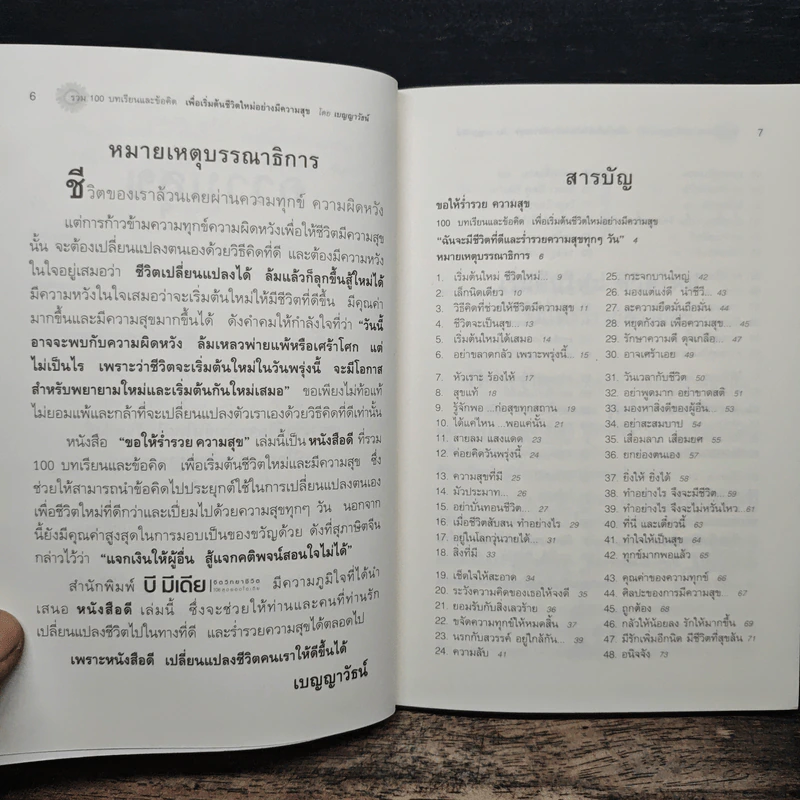 6 รวม 100 บทเรียนและข้อคิด เพื่อเริ่มต้นชีวิตใหม่อย่างมีความสุข โดย เบญญาวัธน์
หมายเหตุบรรณาธิการ
ชีวิตของเราล้วนเคยผ่านความทุกข์ ความผิดหวัง
แต่การก้าวข้ามความทุกข์ความผิดหวังเพื่อให้ชีวิตมีความสุข
นั้น จะต้องเปลี่ยนแปลงตนเองด้วยวิธีคิดที่ดี และต้องมีความหวัง
ในใจอยู่เสมอว่า ชีวิตเปลี่ยนแปลงได้ ล้มแล้วก็ลุกขึ้นสู้ใหม่ได้
มีความหวังในใจเสมอว่าจะเริ่มต้นใหม่ให้มีชีวิตที่ดีขึ้น มีคุณค่า
มากขึ้นและมีความสุขมากขึ้นได้ ดังคำคมให้กำลังใจที่ว่า "วันนี้
อาจจะพบกับความผิดหวัง ล้มเหลวพ่ายแพ้หรือเศร้าโศก แต่
ไม่เป็นไร เพราะว่าชีวิตจะเริ่มต้นใหม่ในวันพรุ่งนี้ จะมีโอกาส
สำหรับพยายามใหม่และเริ่มต้นกันใหม่เสมอ" ขอเพียงไม่ท้อแท้
ไม่ยอมแพ้และกล้าที่จะเปลี่ยนแปลงตัวเราเองด้วยวิธีคิดที่ดีเท่านั้น
หนังสือ "ขอให้ร่ำรวย ความสุข" เล่มนี้เป็น หนังสือดี ที่รวม
100 บทเรียนและข้อคิด เพื่อเริ่มต้นชีวิตใหม่และมีความสุข ซึ่ง
ช่วยให้สามารถนำข้อคิดไปประยุกต์ใช้ในการเปลี่ยนแปลงตนเอง
เพื่อชีวิตใหม่ที่ดีกว่าและเปี่ยมไปด้วยความสุขทุกๆ วัน นอกจาก
นี้ยังมีคุณค่าสูงสุดในการมอบเป็นของขวัญด้วย ดังที่สุภาษิตจีน
กล่าวไว้ว่า "แจกเงินให้ผู้อื่น สู้แจกคติพจน์สอนใจไม่ได้"
สำนักพิมพ์ บี มีเดีย จิตวิทยาชีวิต มีความภูมิใจที่ได้นำ
เสนอ หนังสือดี เล่มนี้ ซึ่งจะช่วยให้ท่านและคนที่ท่านรัก
เปลี่ยนแปลงชีวิตไปในทางที่ดี และร่ำรวยความสุขได้ตลอดไป
เพราะหนังสือดี เปลี่ยนแปลงชีวิตคนเราให้ดีขึ้นได้
เบญญาวัธน์
7
สารบัญ
ขอให้ร่ำรวย ความสุข
100 บทเรียนและข้อคิด เพื่อเริ่มต้นชีวิตใหม่อย่างมีความสุข
"ฉันจะมีชีวิตที่ดีและร่ำรวยความสุขทุกๆ วัน" 4
หมายเหตุบรรณาธิการ 6
1. เริ่มต้นใหม่ ชีวิตใหม่... 9
2. เล็กนิดเดียว 10
3. วิธีคิดที่ช่วยให้ชีวิตมีความสุข 11
4. ชีวิตจะเป็นสุข... 13
5. เริ่มต้นใหม่ได้เสมอ 14
6. อย่าขลาดกลัว เพราะพรุ่งนี้... 15
7. หัวเราะ ร้องไห้ 17
8. สุขแท้ 18
9. รู้จักพอ ...ก่อสุขทุกสถาน 19
10. ได้แค่ไหน ...พอแค่นั้น 21
11. สายลม แสงแดด 23
12. ค่อยคิดวันพรุ่งนี้ 24
13. ความสุขที่มี 25
14. มัวประมาท... 26
15. อย่าบั่นทอนชีวิต... 27
16. เมื่อชีวิตสับสน ทำอย่างไร 29
17. อยู่ในโลกวุ่นวายได้... 31
18. สิ่งที่มี 33
19. เช็ดใจให้สะอาด 34
20. ระวังความคิดของเธอให้จงดี 35
21. ยอมรับกับสิ่งเลวร้าย 36
22. ขจัดความทุกข์ให้หมดสิ้น 37
23. นรกกับสวรรค์ อยู่ใกล้กัน... 39
24. ความลับ 41
25. กระจกบานใหญ่ 42
26. มองแต่แง่ดี นำชีวี... 43
27. ละความยึดมั่นถือมั่น 44
28. หยุดกังวล เพื่อความสุข... 45
29. รักษาความดี ดุจเกลือ... 47
30. อาจเศร้าเอย 49
31. วันเวลากับชีวิต 50
32. อย่าพูดมาก อย่าขาดสติ 51
33. มองหาสิ่งดีของผู้อื่น... 53
34. อย่าสะสมบาป 54
35. เสื่อมลาภ เสื่อมยศ 55
36. ยกย่องตนเอง 57
37. ยิ่งให้ ยิ่งได้ 58
38. ทำอย่างไร จึงจะมีชีวิต... 59
39. ทำอย่างไร จึงจะไม่หวั่นไหว... 61
40. ที่นี่ และเดี๋ยวนี้ 63
41. ทำใจให้เป็นสุข 64
42. ทุกข์มากพอแล้ว 65
43. คุณค่าของความทุกข์ 66
44. ศิลปะของการมีความสุข... 67
45. ถูกต้อง 68
46. กลัวให้น้อยลง รักให้มากขึ้น 69
47. มีรักเพิ่มอีกนิด มีชีวิตที่สุขล้น 71
48. อนิจจัง 73